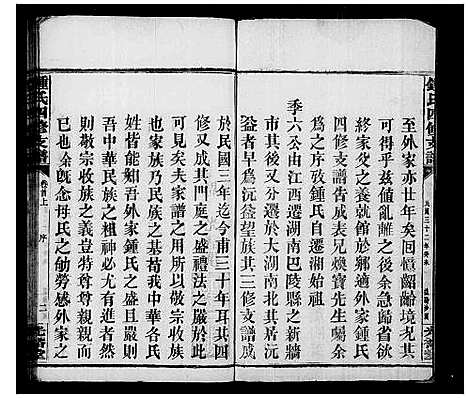 鍾氏四修支譜
至外家亦廿年矣回憶齠齡境況其
可得乎兹値亂離之後急歸省欲
終家父母養老爰就館於外家鍾氏
四修支譜告成表兄煥寶先生囑余
爲之序攷鍾氏自遷湖始祖
季六公由江西遷湖南巴陵縣之新牆
其後又分遷於大湖南北其居沅
益者早与沅益望族其三修支譜成
於民國三年迄今甫三十年耳其四
修又成其門庭之盛禮法之嚴於此
可見矣夫家譜之用所以敬宗收族
也家族乃民族之基茍我中華各氏
姓皆能如吾外家鍾氏之盛且嚴則
吾中華民族之祖神必尤有進者然
則敬宗收族之義豈特尊尊親親而
已也余旣念母氏之劬勞感外家之
鍾氏四修支譜
卷首上
序
二